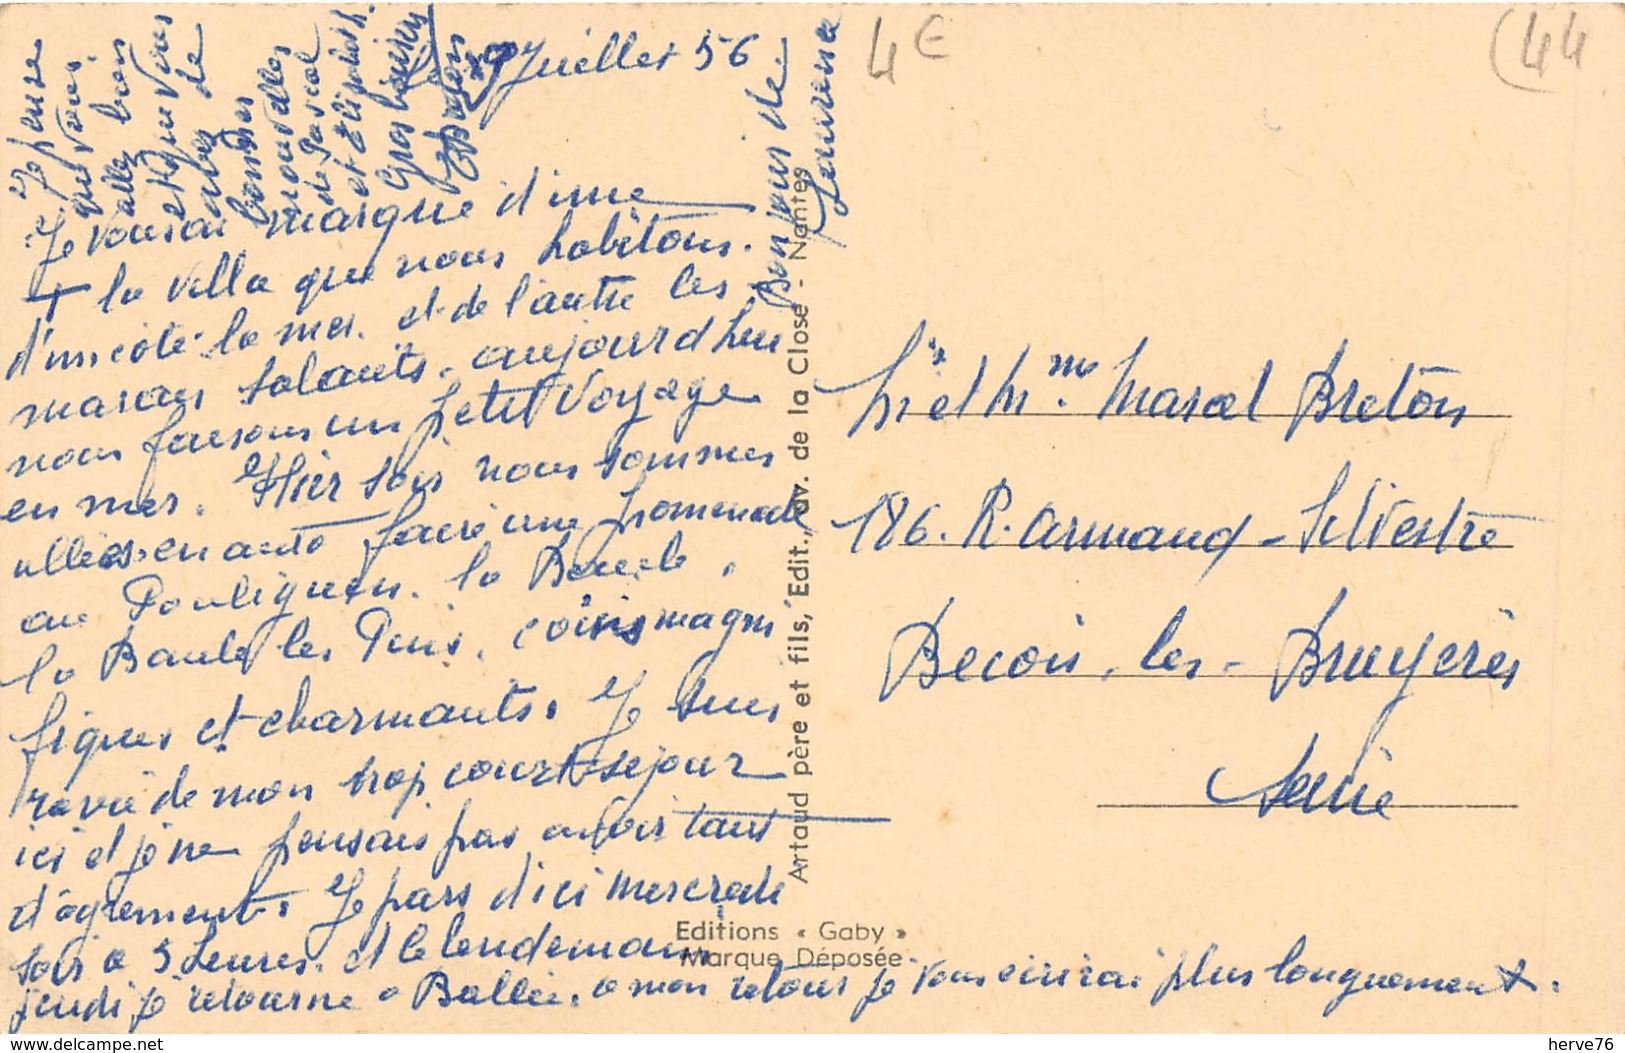 Juillet 56
4€
(44
Je pense
que vous
allez bien
et que vous
avez de
bonnes
nouvelles
de Pascal
et Elisabeth.
Gros baisers
Bonjour de
Laurence
Je vous ai marqué d'une
+ la villa que nous habitons.
d'un côté la mer. et de l'autre les
marais salants. aujourd'hui
nous faisons un petit voyage
en mer. Hier soir nous sommes
allées en auto faire une promenade
au Pouliguen. la Baule,
la Baule les Pins. coins magni
fiques et charmants. Je suis
ravie de mon trop court séjour
ici et je ne pensais pas avoir tant
d'agrément. Je pars d'ici mercredi
soir à 5 heures. et le lendemain
jeudi je retourne à Ballée. à mon retour je vous écrirai plus longuement.
Mr et Mme Marcel Breton
186. R. Armand-Silvestre
Becon-les-Bruyères
Seine
Artaud père et fils, Edit., av. de la Close - Nantes
Editions « Gaby »
Marque Déposée
delcampe.net
herve76